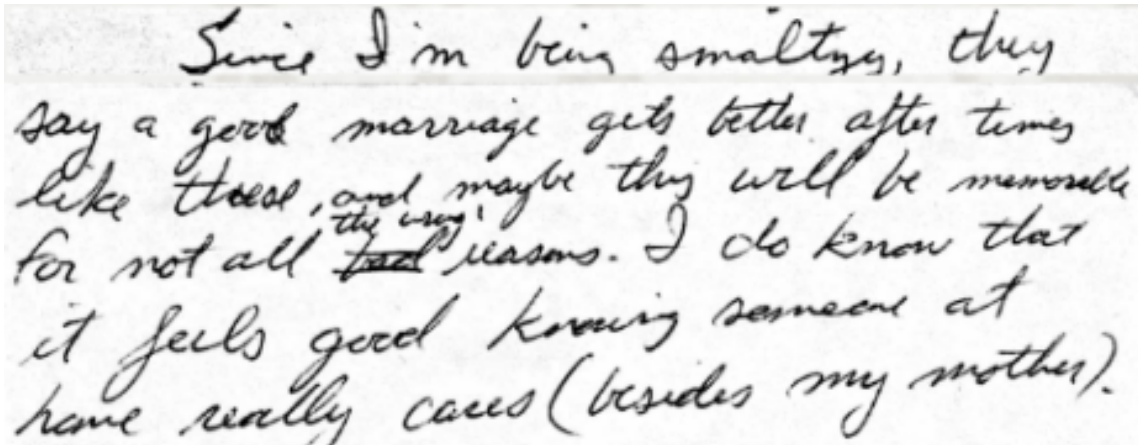 Since I'm being smaltzy, they
say a good marriage gets better after times
like these, and maybe this will be memorable
the wrong
for not all bad reasons. I do know that
it feels good knowing someone at
home really cares (besides my mother).